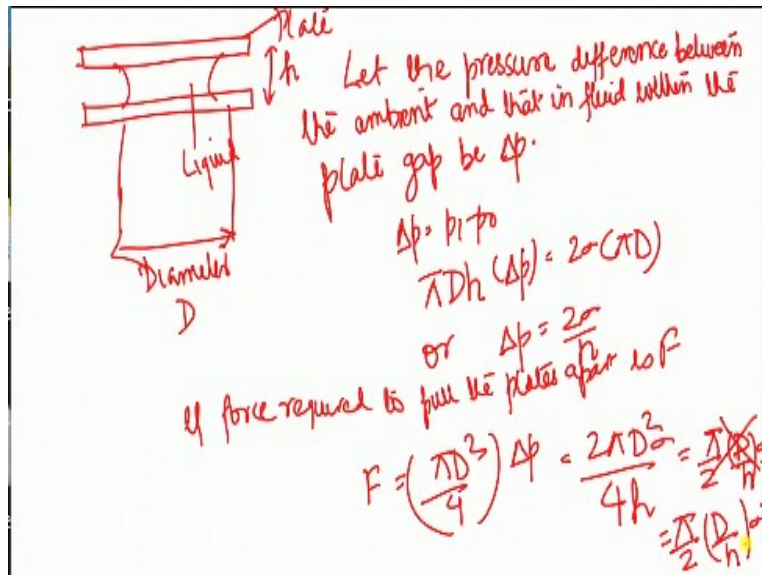 Plate
h
Liquid
Diameter
D
Let the pressure difference between
the ambient and that in fluid within the
plate gap be Δp.
Δp = p1 - p0
πDh (Δp) = 2σ(πD)
or Δp = 2σ/h
If force required to pull the plates apart is F
F = (πD²/4) Δp = 2πD²σ/4h = π/2
= π/2 (D/h)